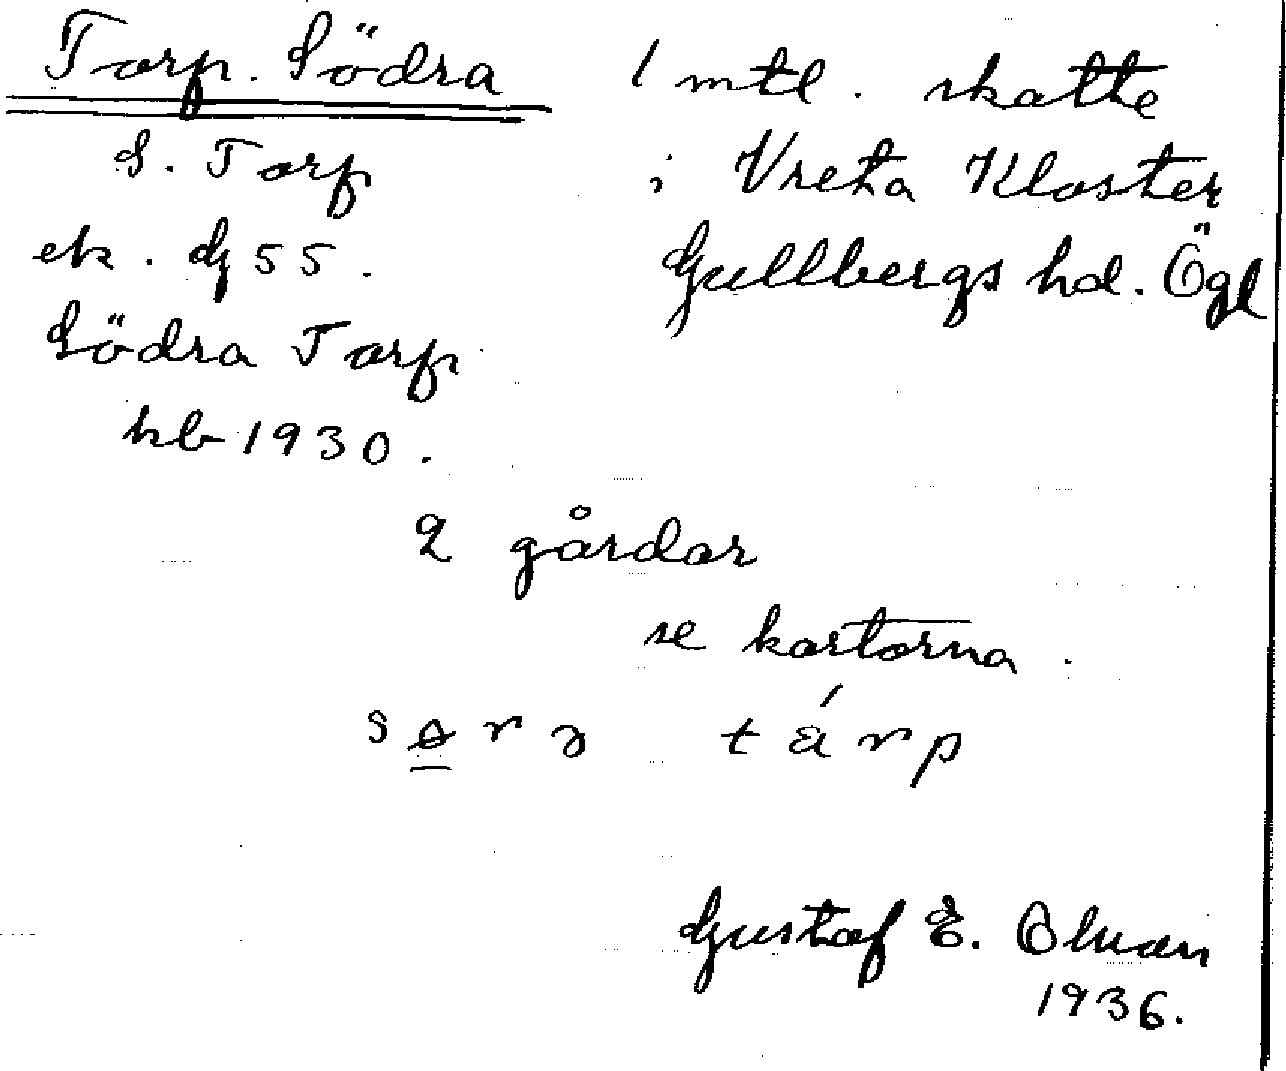 Torp. Södra
1 mtl. skatte
S. Torp
i Vreta Kloster
ek. dj 55.
Gullbergs hd. Ögl
Södra Torp
kb 1930.
2 gårdar
se kartorna.
tárp
Gustaf E.
1936.